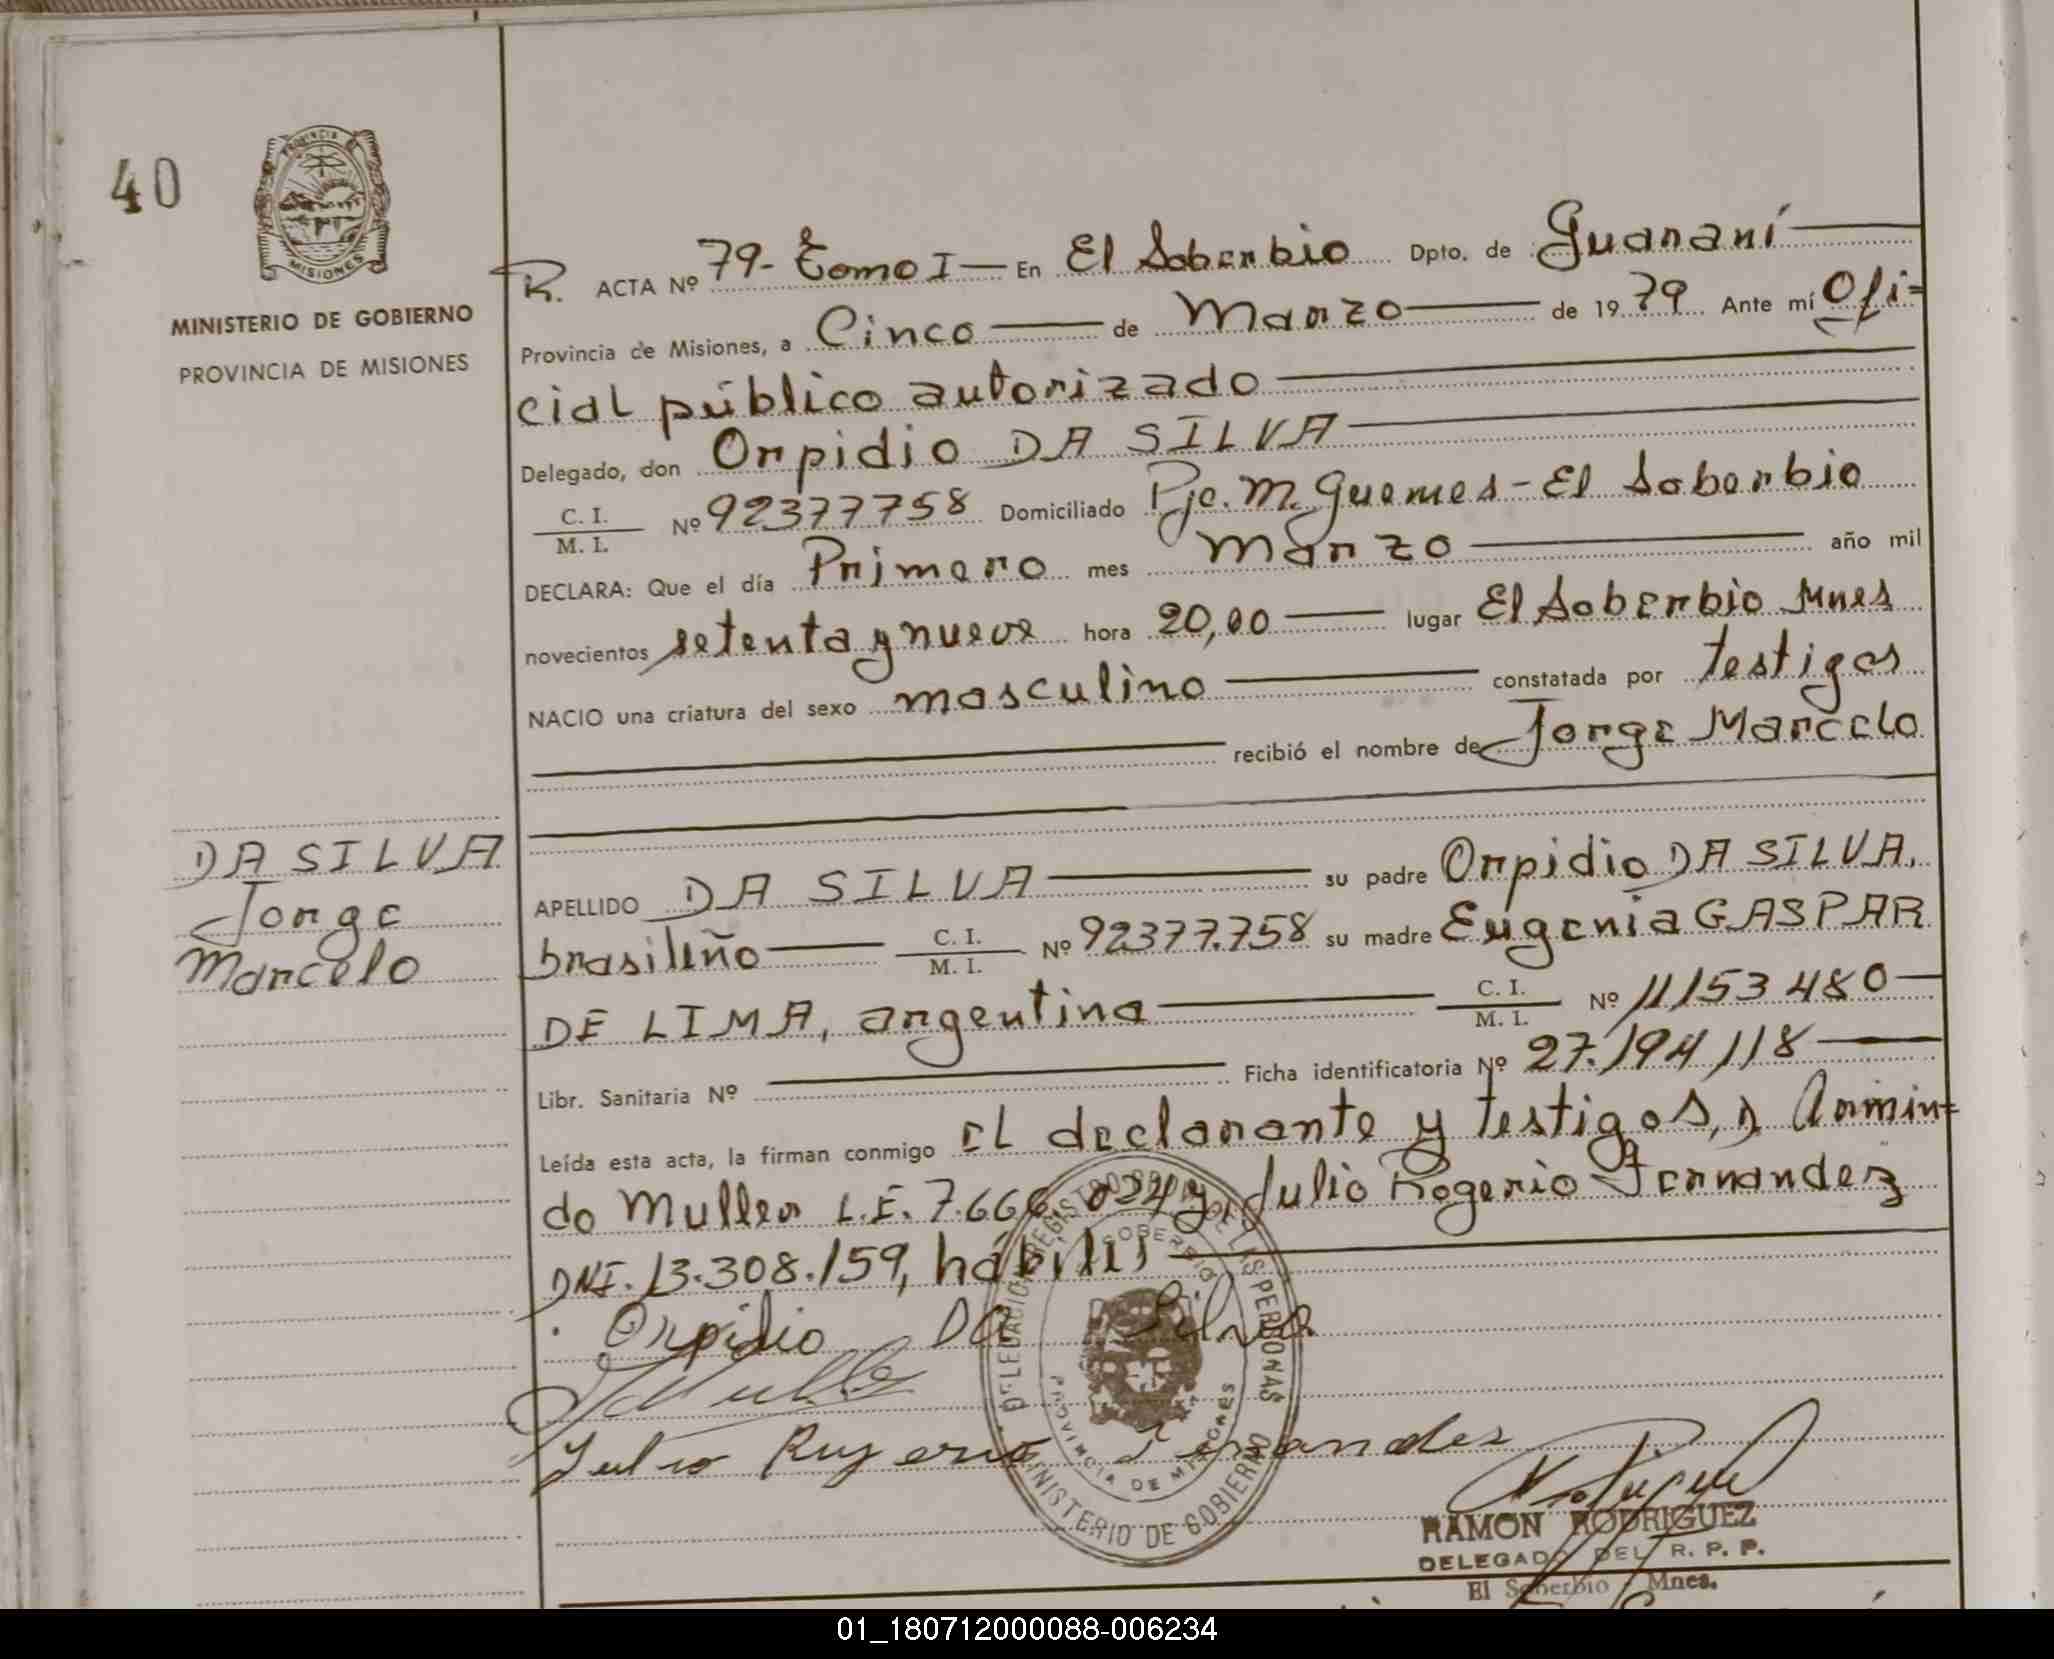 40
PROVINCIA
MISIONES
MINISTERIO DE GOBIERNO
PROVINCIA DE MISIONES
R. ACTA Nº 79- Tomo I — En El Soberbio Dpto. de Guaraní
Provincia de Misiones, a Cinco de Marzo de 1979 Ante mí Ofi=
cial público autorizado
Delegado, don Orpidio DA SILVA
C. I. / M. I. Nº 92377758 Domiciliado Pje. M. Guemes - El Soberbio
DECLARA: Que el día Primero mes Marzo año mil
novecientos setenta y nueve hora 20,00 lugar El Soberbio Mnes
NACIO una criatura del sexo masculino constatada por testigos
recibió el nombre de Jorge Marcelo
DA SILVA
Jorge
Marcelo
APELLIDO DA SILVA su padre Orpidio DA SILVA,
brasileño C. I. / M. I. Nº 92377.758 su madre Eugenia GASPAR
DE LIMA, argentina C. I. / M. I. Nº 11153480
Libr. Sanitaria Nº Ficha identificatoria Nº 27.194118
Leída esta acta, la firman conmigo el declarante y testigos, D. Armin=
do Muller L.E. 7.666.024 y D. Julio Rogerio Fernandez
DNI. 13.308.159, hábiles
Orpidio DA Silva
Julio Rugerio Fernandes
DELEGACION REGISTRO DE LAS PERSONAS
SOBERBIO
PROVINCIA DE MISIONES
MINISTERIO DE GOBIERNO
RAMON RODRIGUEZ
DELEGADO DEL R. P. P.
El Soberbio - Mnes.
01_180712000088-006234